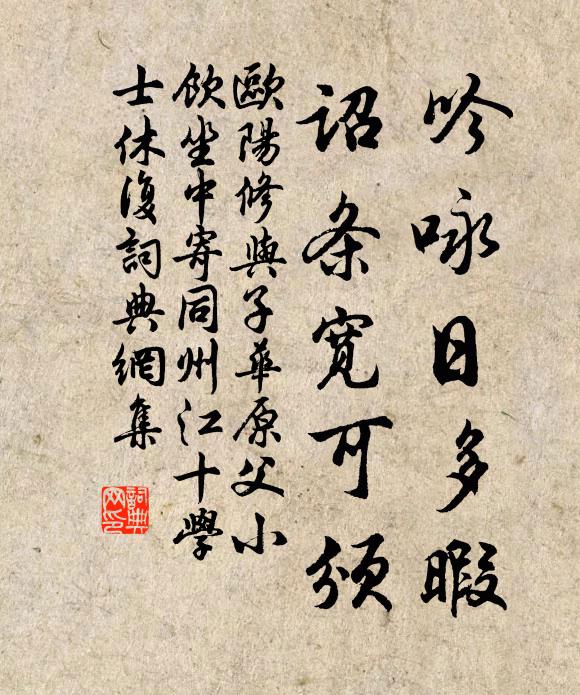 吟咏日多暇
詔条寛可頒
歐陽修與子華原父小
飲坐中寄同州江十學
士休復詞典網集
詞典
网印